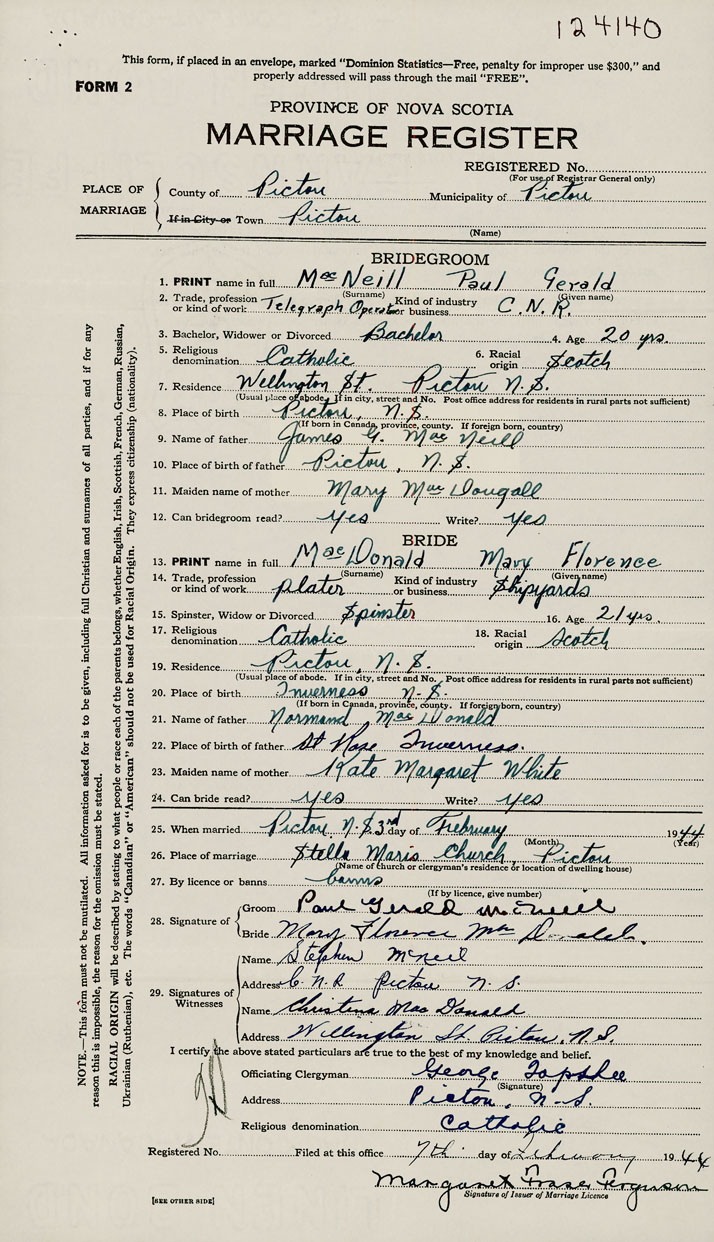 124140
This form, if placed in an envelope, marked "Dominion Statistics—Free, penalty for improper use $300," and
properly addressed will pass through the mail "FREE".
FORM 2
PROVINCE OF NOVA SCOTIA
MARRIAGE REGISTER
REGISTERED No.
(For use of Registrar General only)
PLACE OF MARRIAGE
County of Pictou Municipality of Pictou
If in City or Town Pictou
(Name)
BRIDEGROOM
1. PRINT name in full MacNeill Paul Gerald
(Surname) (Given name)
2. Trade, profession or kind of work Telegraph Operator Kind of industry or business C.N.R.
3. Bachelor, Widower or Divorced Bachelor 4. Age 20 yrs.
5. Religious denomination Catholic 6. Racial origin Scotch
7. Residence Wellington St. Pictou N.S.
(Usual place of abode. If in city, street and No. Post office address for residents in rural parts not sufficient)
8. Place of birth Pictou, N.S.
(If born in Canada, province, county. If foreign born, country)
9. Name of father James G. MacNeill
10. Place of birth of father Pictou, N.S.
11. Maiden name of mother Mary MacDougall
12. Can bridegroom read? yes Write? yes
BRIDE
13. PRINT name in full MacDonald Mary Florence
(Surname) (Given name)
14. Trade, profession or kind of work plater Kind of industry or business Shipyards
15. Spinster, Widow or Divorced Spinster 16. Age 21 yrs.
17. Religious denomination Catholic 18. Racial origin Scotch
19. Residence Pictou, N.S.
(Usual place of abode. If in city, street and No. Post office address for residents in rural parts not sufficient)
20. Place of birth Inverness N.S.
(If born in Canada, province, county. If foreign born, country)
21. Name of father Normand MacDonald
22. Place of birth of father St Rose Inverness.
23. Maiden name of mother Kate Margaret White
24. Can bride read? yes Write? yes
25. When married Pictou N.S. 3rd day of February 1944
(Month) (Year)
26. Place of marriage Stella Maris Church, Pictou
(Name of church or clergyman's residence or location of dwelling house)
27. By licence or banns banns
(If by licence, give number)
28. Signature of
Groom Paul Gerald McNeill
Bride Mary Florence MacDonald.
29. Signatures of Witnesses
Name Stephen McNeil
Address C.N.R Pictou N.S.
Name Christena MacDonald
Address Willington St. Pictou, N.S.
I certify the above stated particulars are true to the best of my knowledge and belief.
Officiating Clergyman George Topshee
(Signature)
Address Pictou, N.S.
Religious denomination Catholic
Registered No. Filed at this office 7th day of February 1944
Margaret Fraser Ferguson
Signature of Issuer of Marriage Licence
[SEE OTHER SIDE]
NOTE.—This form must not be mutilated. All information asked for is to be given, including full Christian and surnames of all parties, and if for any
reason this is impossible, the reason for the omission must be stated.
RACIAL ORIGIN will be described by stating to what people or race each of the parents belongs, whether English, Irish, Scottish, French, German, Russian,
Ukrainian (Ruthenian), etc. The words "Canadian" or "American" should not be used for Racial Origin. They express citizenship (nationality).